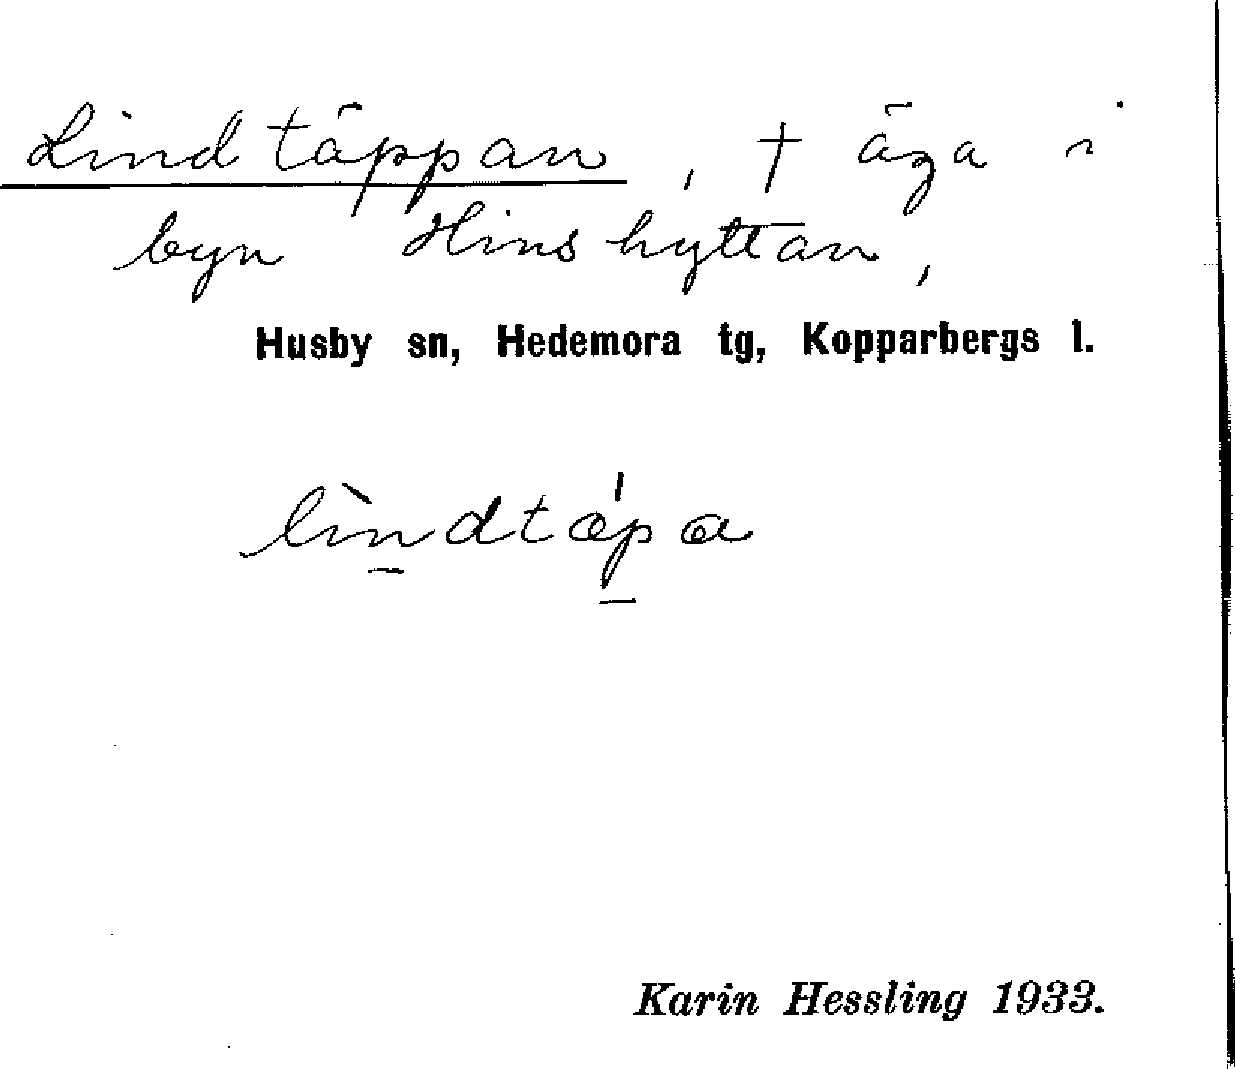 Lindtäppan, † äga i
byn Hinshyttan,
Husby sn, Hedemora tg, Kopparbergs l.
lìn̲dtæ̍p̲a
Karin Hessling 1933.